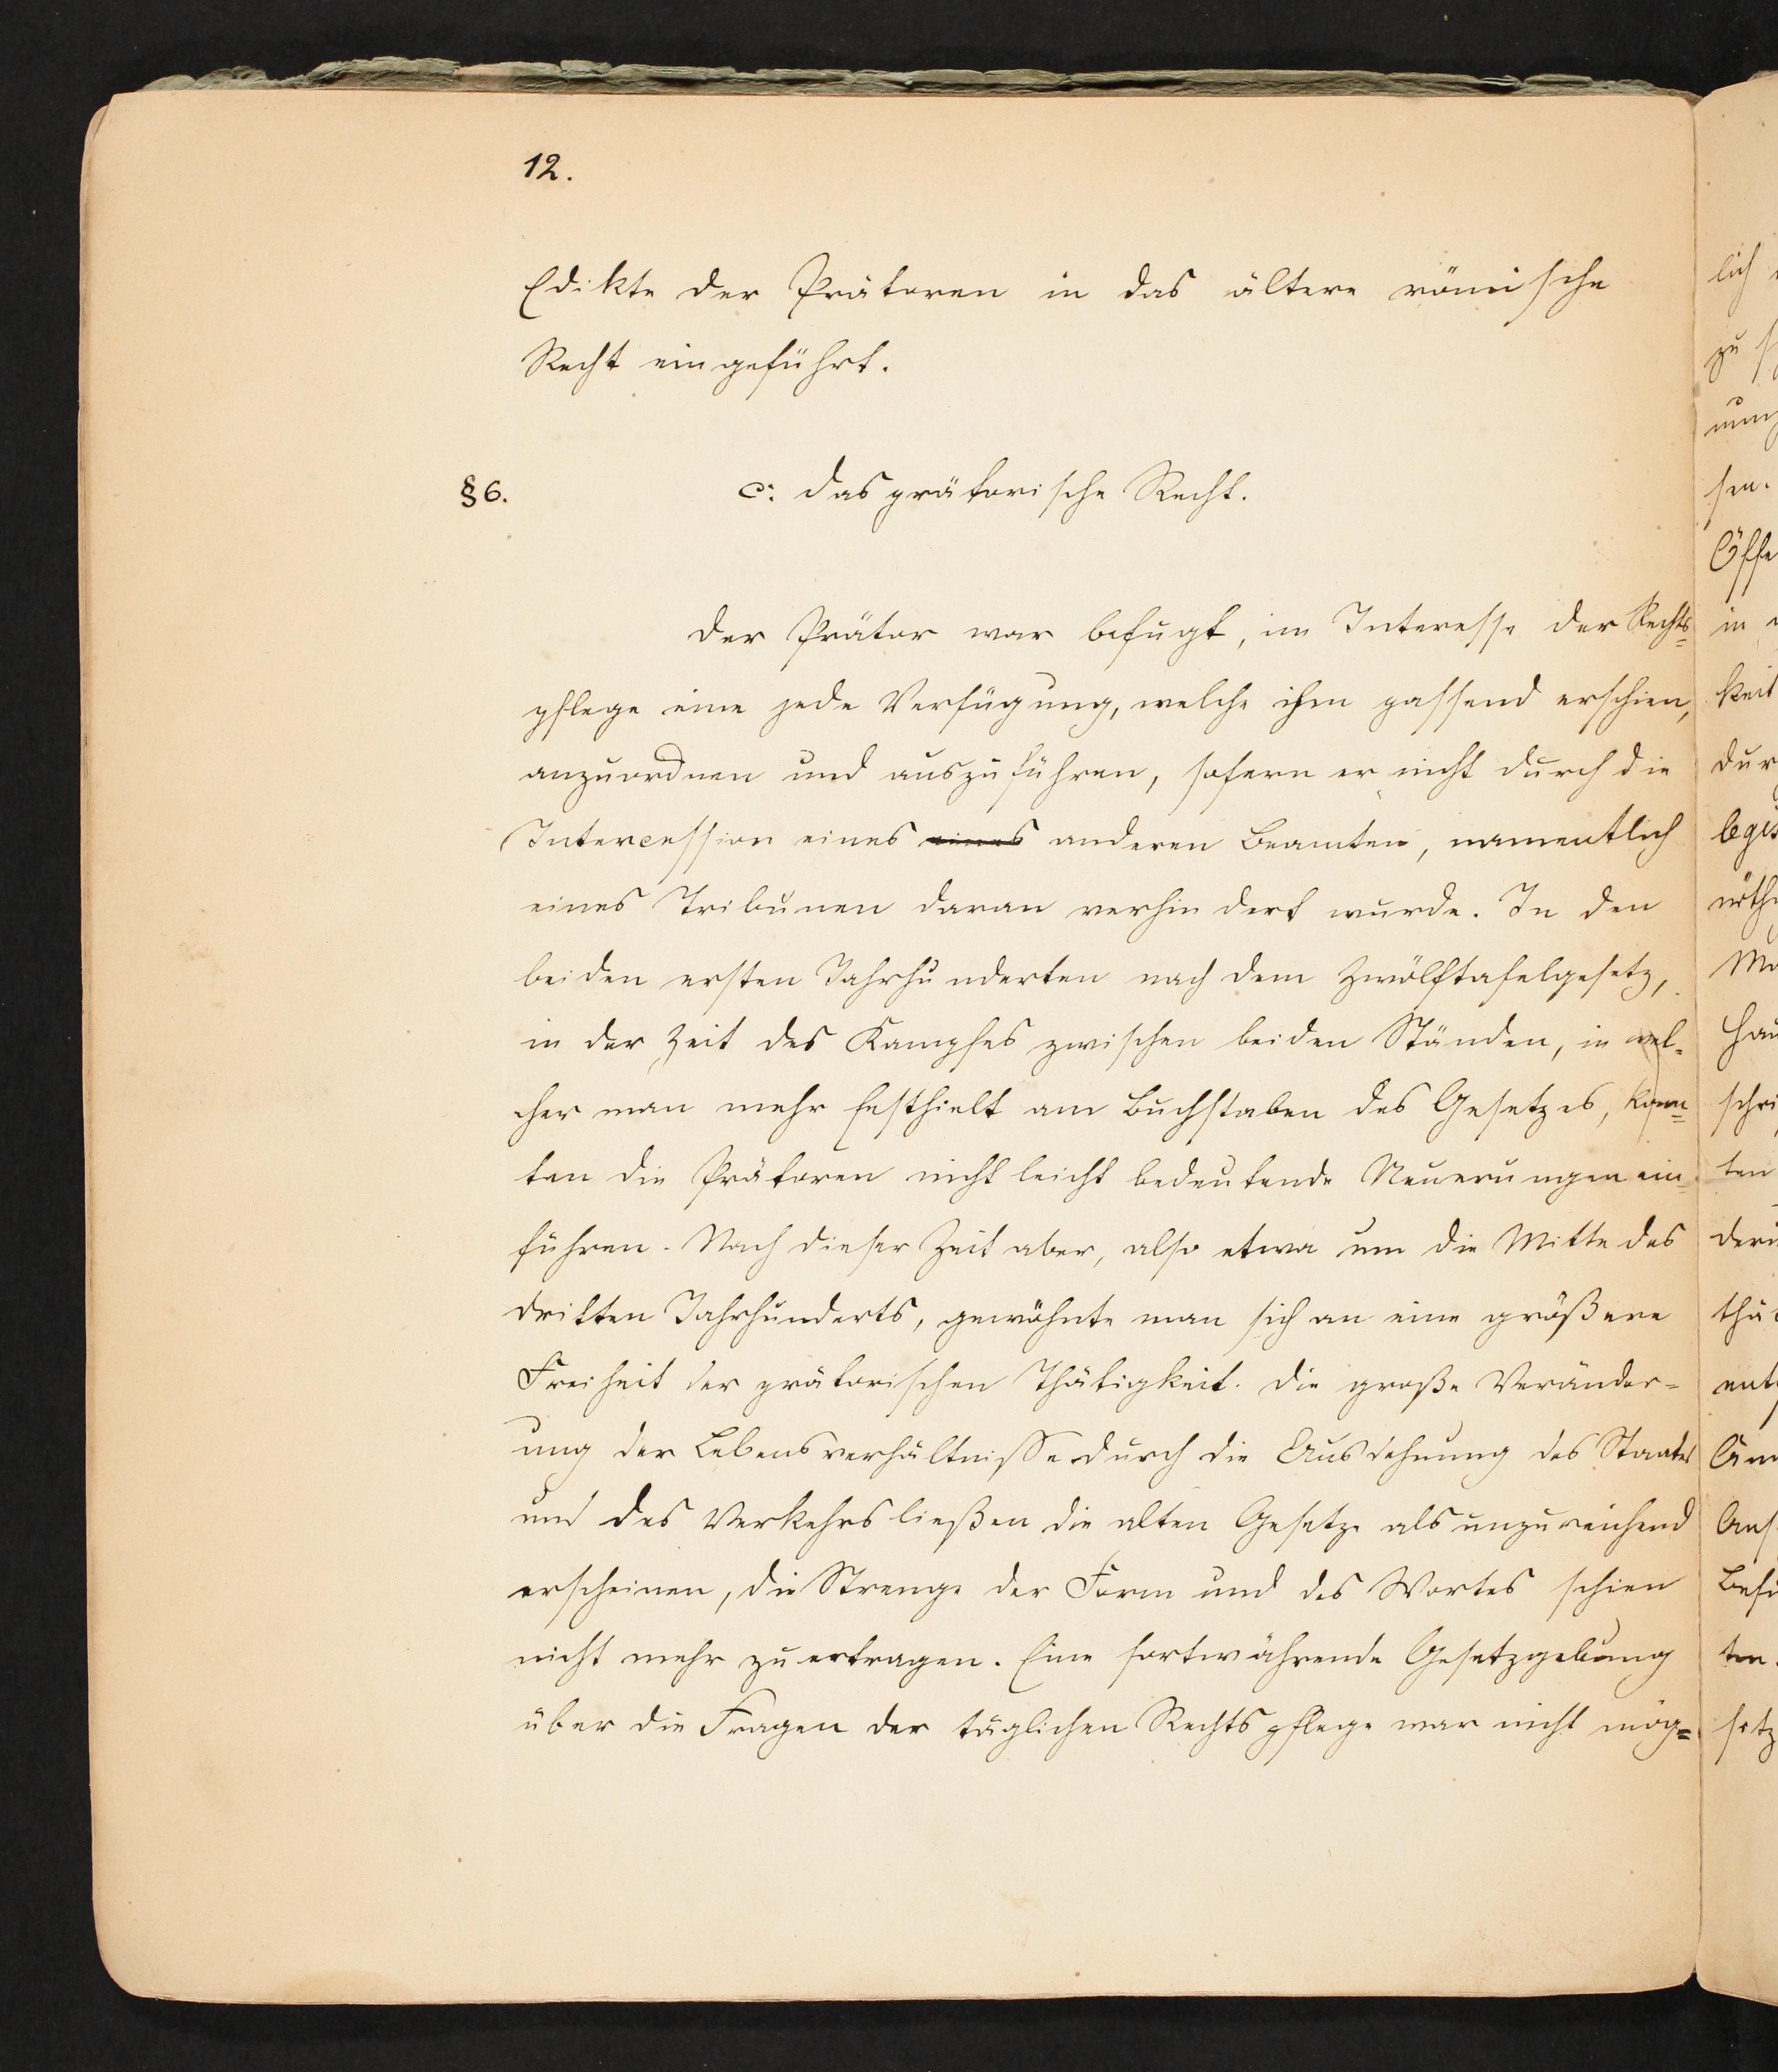 12.
Edikte der Prätoren in das ältere römische
Recht eingeführt.
§ 6. c: das prätorische Recht.
Der Prätor war befugt, im Interesse der Rechts=
pflege eine jede Verfügung, welche ihm passend erschien,
anzuordnen und auszuführen, sofern er nicht durch die
Intercession eines eines anderen Beamten, namentlich
eines Tribunen daran verhindert wurde. In den
beiden ersten Jahrhunderten nach dem Zwölftafelgesetz,
in der Zeit des Kampfes zwischen beiden Ständen, in wel=
cher man mehr festhielt am Buchstaben des Gesetzes, konn=
ten die Prätoren nicht leicht bedeutende Neuerungen ein=
führen. Nach dieser Zeit aber, also etwa um die Mitte des
dritten Jahrhunderts, gewöhnte man sich an eine größere
Freiheit der prätorischen Thätigkeit. Die große Veränder=
ung der Lebensverhältnisse durch die Ausdehnung des Staates
und des Verkehrs ließen die alten Gesetze als unzureichend
erscheinen, die Strenge der Form und des Wortes schien
nicht mehr zu ertragen. Eine fortwährende Gesetzgebung
über die Fragen der täglichen Rechtspflege war nicht mög=